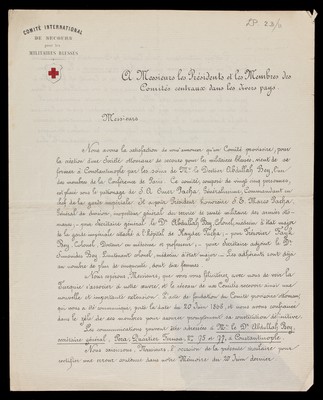 COMITÉ INTERNATIONAL
DE SECOURS
pour les
MILITAIRES BLESSÉS
A Messieurs les Présidents et les Membres des
Comités centraux dans les divers pays.
Messieurs
Nous avons la satisfaction de vous annoncer qu'un Comité provisoire, pour
la création d'une Société ottomane de secours pour les militaires blessés, vient de se
former à Constantinople par les soins de Mr le Docteur Abdullah Bey, l'un
des membres de la Conférence de Paris. Ce comité, composé de vingt cinq personnes,
est placé sous le patronage de S. A. Omer Pacha, Généralissime, Commandant en
chef de la garde impériale. Il a pour Président honoraire S. E. Pacha,
Général de division, inspecteur général du service de santé militaire des armées
; pour Secrétaire général le Dr Abdullah Bey, Colonel, médecin d'état major
de la garde impériale attaché à l'hôpital de Haydar Pacha; pour Trésorier
Bey, Colonel, Docteur en médecine et professeur; pour Secrétaire adjoint le Dr
Bey Lieutenant Colonel, médecin d'état major. Les adhérents sont déjà
au nombre de plus de cinquante, dont six femmes.
Nous espérons, Messieurs, que vous vous féliciterez, avec nous de voir la
Turquie s'associer à notre œuvre, et le réseau de nos Comités recevoir ainsi une
nouvelle et importante extension. L'acte de fondation du Comité provisoire ottoman,
qui nous a été communiqué, porte la date du 20 Juin 1868, et nous avons confiance
dans le zèle de ses membres pour assurer promptement sa constitution définitive.
Les communications peuvent être adressées à Mr le Dr Abdullah Bey,
secrétaire général, Pera, Quartier 75 et 77, à Constantinople.
Nous saisissons, Messieurs, l'occasion de la présente circulaire pour
rectifier une erreur contenue dans notre Mémoire du 20 Juin dernier